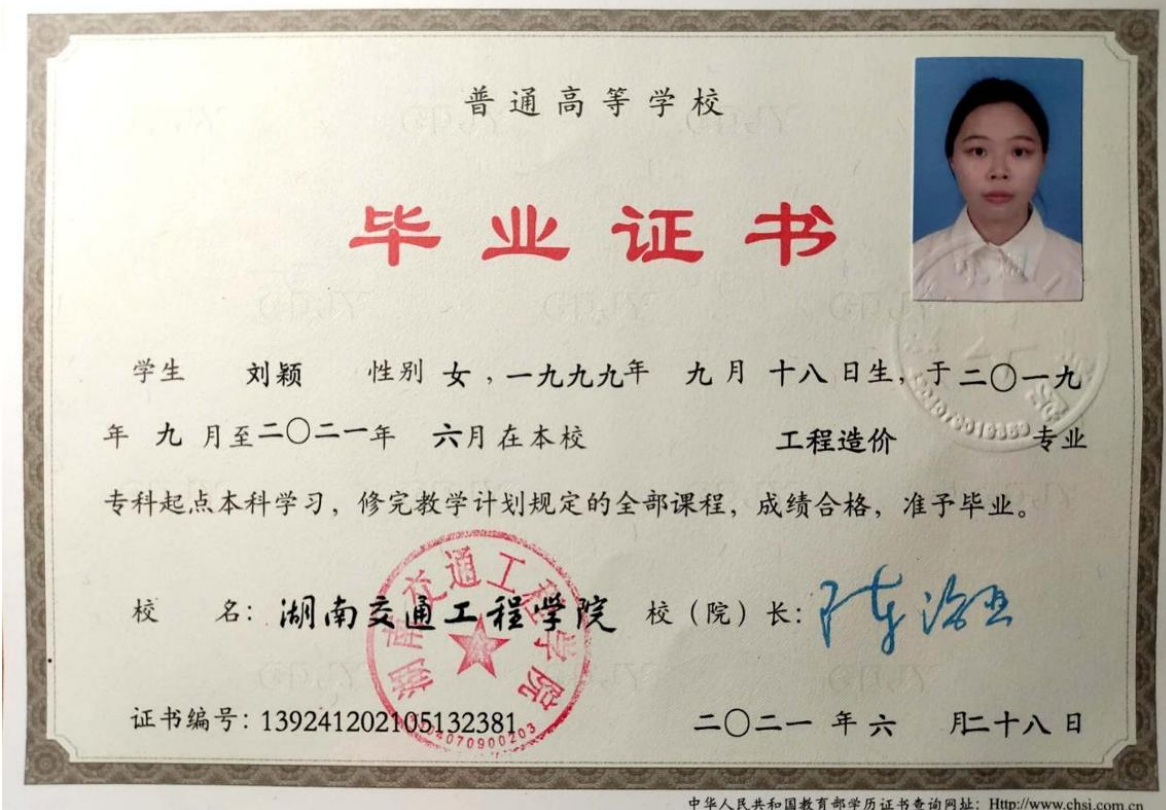 普通高等学校
毕业证书
学生 刘颖 性别 女，一九九九年 九月 十八日生，于二〇一九
年 九 月至二〇二一年 六月在本校 工程造价 专业
专科起点本科学习，修完教学计划规定的全部课程，成绩合格，准予毕业。
校 名：湖南交通工程学院 校（院）长：
湖南交通工程学院
证书编号：139241202105132381
二〇二一 年 六 月二十八日
中华人民共和国教育部学历证书查询网址：Http://www.chsi.com.cn